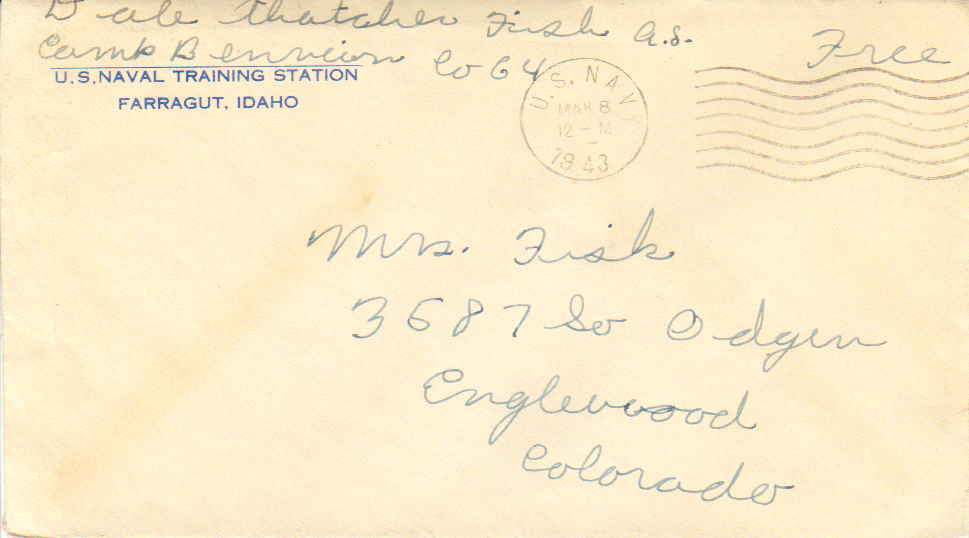 Dale Thatcher Fisk A.S.
Free
Camp Bennion Co 64
U.S. NAVAL TRAINING STATION
FARRAGUT, IDAHO
U.S. NAVY
MAR 8
12-M
1943
Mrs. Fisk
3687 So Odgen
Englewood
Colorado